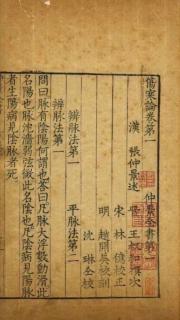 傷寒論卷第一
仲景全書第一
漢 張仲景述
王叔和撰次
宋 林億校正
明 趙開美校刻
沈琳仝校
辨脉法第一 平脉法第二
辨脉法第一
問曰脉有陰陽何謂也荅曰凢脉大浮數動滑此
名陽也脉沈濇弱弦微此名陰也凢陰病見陽脉
者生陽病見陰脉者死